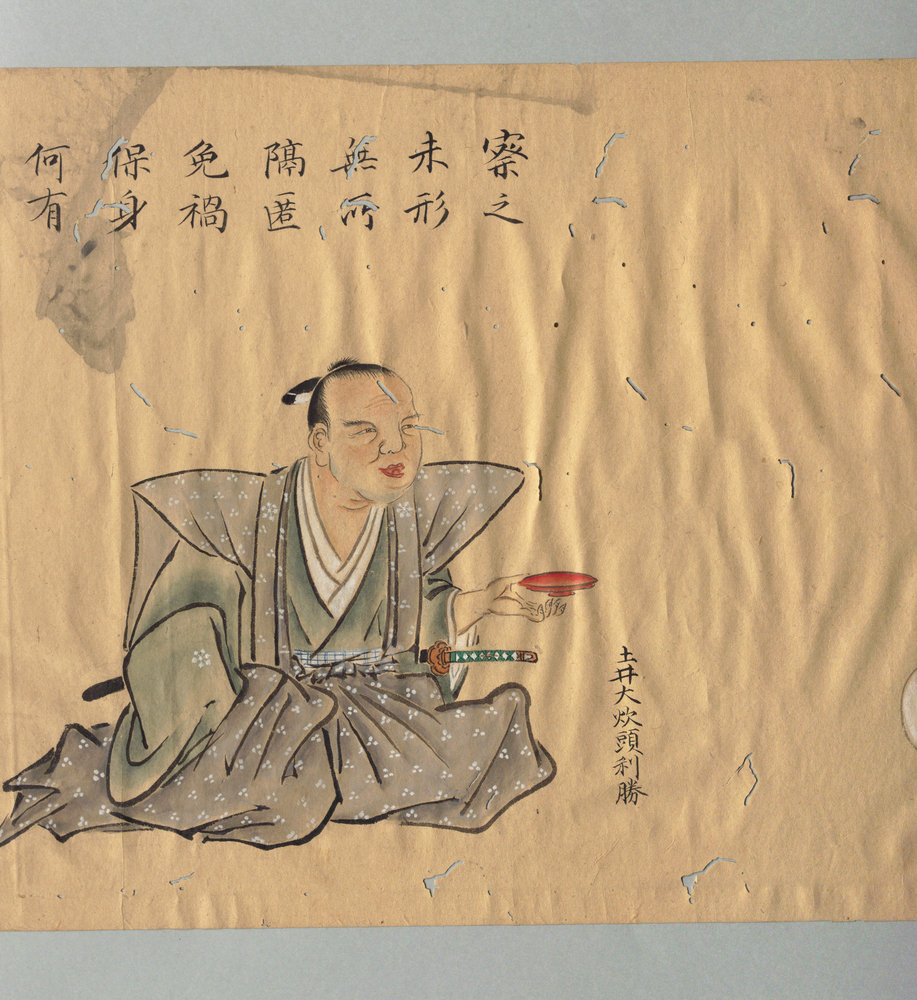 察之
未形
無所
隔匿
免禍
保身
何有
土井大炊頭利勝